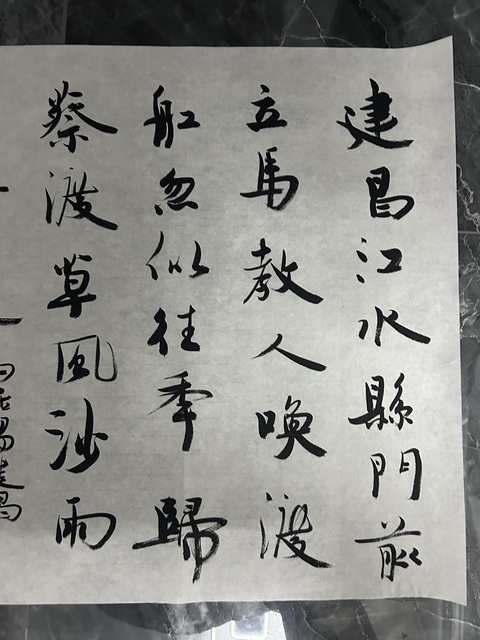 建昌江水縣門前
立馬教人喚渡
船忽似往年歸
蔡渡草風沙雨
白居易建昌